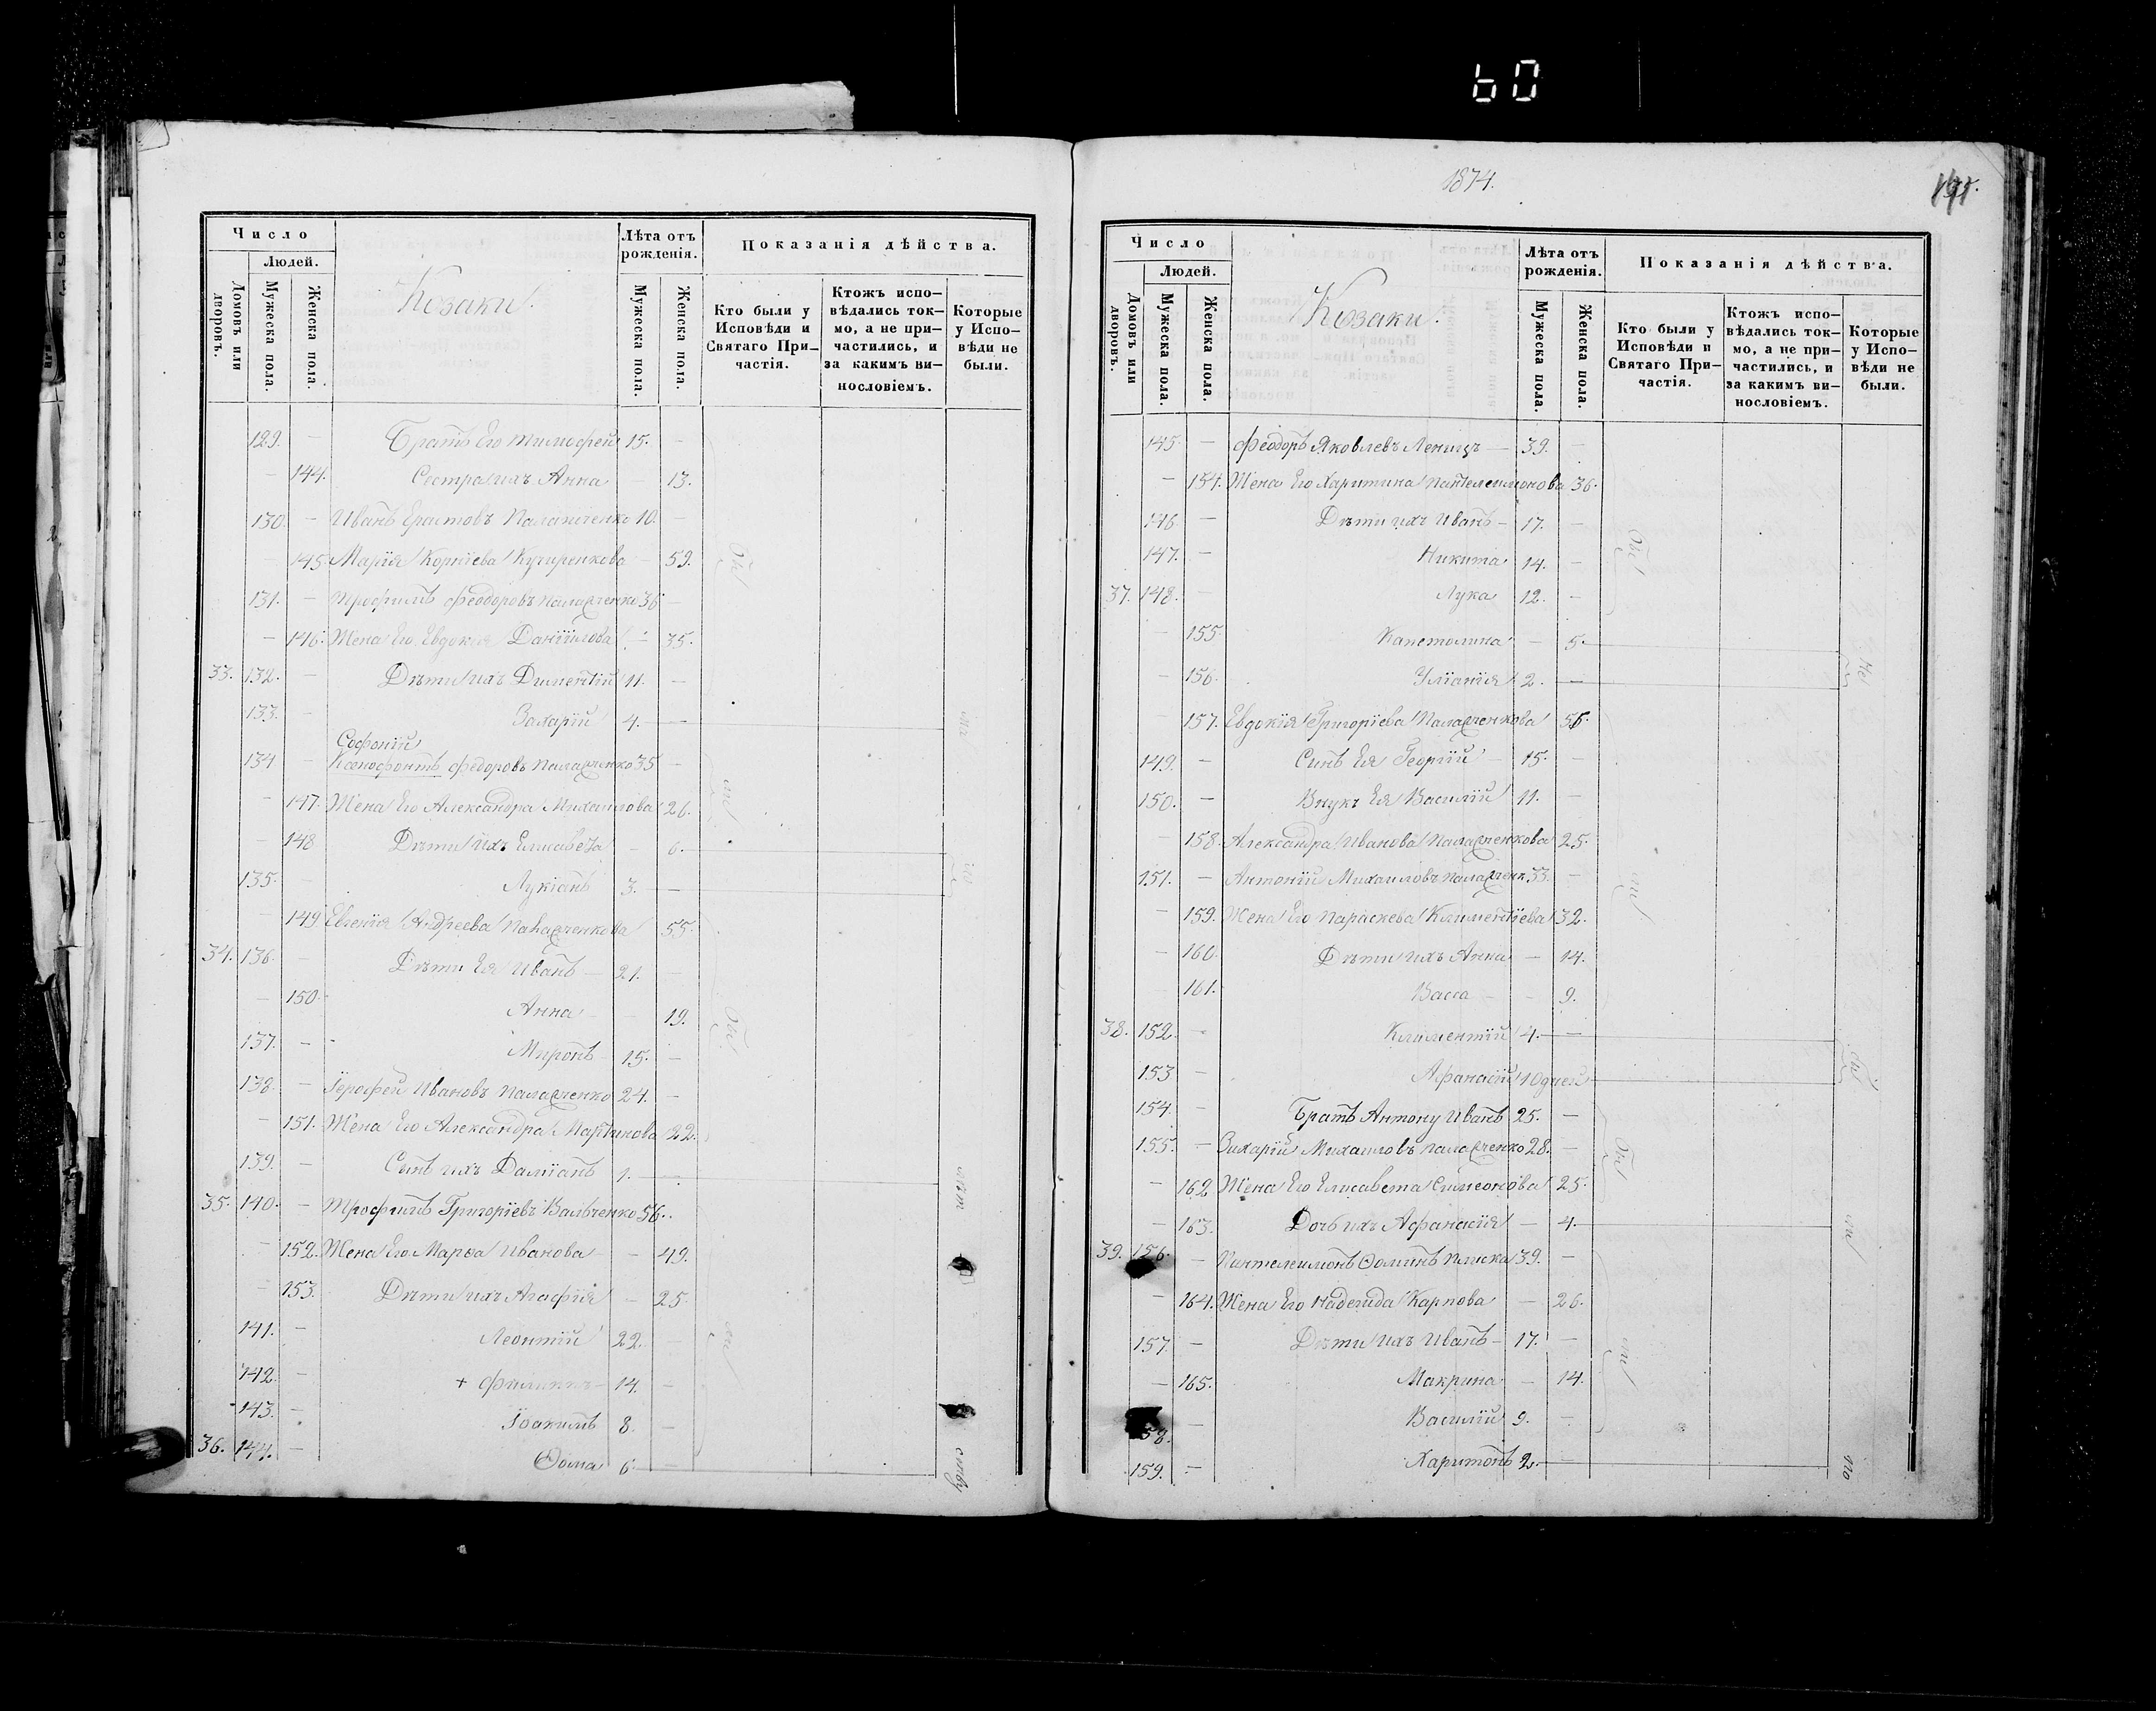 60
Число
Лѣта отъ рожденія.
Показанія дѣйства.
Людей.
Домовъ или дворовъ.
Мужеска пола.
Женска пола.
Козаки.
Мужеска пола.
Женска пола.
Кто были у Исповѣди и Святаго При-частія.
Ктожъ испо-вѣдались ток-мо, а не при-частились, и за какимъ ви-нословіемъ.
Которые у Испо-вѣди не были.
129. — Братъ Его Тимофей 15. —
— 144. Сестра ихъ Анна — 13.
130. — Иванъ 10. —
145. Марія Корнїева Кучиренкова — 59.
131. — Трофимъ Феодоровъ Палащенко 36 —
— 146. Жена Его Евдокія Данїилова — 35.
33. 132. — Дѣти ихъ Диментїй 11. —
133. — Захарїй 4. —
Софонїй
134 — Ксенофонтъ Федоровъ Палащенко 35 —
— 147. Жена Его Александра Михаилова 26.
— 148 Дѣти ихъ Елисавета — 6.
135. — Лукїанъ 3. —
— 149 Евгенія Андреева Палащенкова 55.
34. 136. — Дѣти Ея Иванъ — 21. —
— 150. Анна — — 19.
137. — Миронъ 15. —
138. — Їерофей Ивановъ Палащенко 24. —
— 151. Жена Его Александра Мартинова 22.
139. — Сынъ ихъ Дамїанъ 1. —
35. 140. — Трофимъ Григорїевъ Вальченко 56.
— 152. Жена Его Марѳа Иванова — 49.
— 153. Дѣти ихъ Агафїя — 25.
141. — Леонтїй 22. —
142. — + Филиппъ 14. —
143. — Їоакимъ 8. —
36. 144. — Ѳома 6. —
1874.
Число
Лѣта отъ рожденія.
Показанія дѣйства.
Людей.
Домовъ или дворовъ.
Мужеска пола.
Женска пола.
Козаки.
Мужеска пола.
Женска пола.
Кто были у Исповѣди и Святаго При-частія.
Ктожъ испо-вѣдались ток-мо, а не при-частились, и за какимъ ви-нословіемъ.
Которые у Испо-вѣди не были.
145. — Феодоръ Яковлевъ 39. —
— 154. Жена Его Харитина Пантелеимонова 36.
146. — Дѣти ихъ Иванъ — 17. —
147. — Никита 14. —
37. 148. — Лука 12. —
— 155. Капетолина — 5.
— 156. Улїанїя 2. —
157. Евдокїя Григорїева Палащенкова 56.
149. — Синъ Ея Георгїй — 15. —
150. — Внукъ Ея Василїй 11. —
— 158. Александра Иванова Палащенкова 25.
151. — Антонїй Михаиловъ Палащенк 33. —
— 159. Жена Его Параскева Климентїева 32.
— 160. Дѣти ихъ Анна — 14.
161. Васса — — 9.
38. 152. — Климентїй 4. —
153 — Афанасїй 10 дней
154. — Братъ Антону Иванъ 25. —
155. — Захарїй Михаиловъ Палащенко 28. —
— 162 Жена Его Елисавета Симеонова 25.
— 163. Дочь ихъ Афанасїя — 4.
39. 156. — Пантелеимонъ Ѳоминъ 39. —
— 164. Жена Его Надежда Карпова — 26.
157. — Дѣти ихъ Иванъ — 17. —
— 165. Макрина — 14.
58. — Василїй 9. —
159. — Харитонъ 2. —